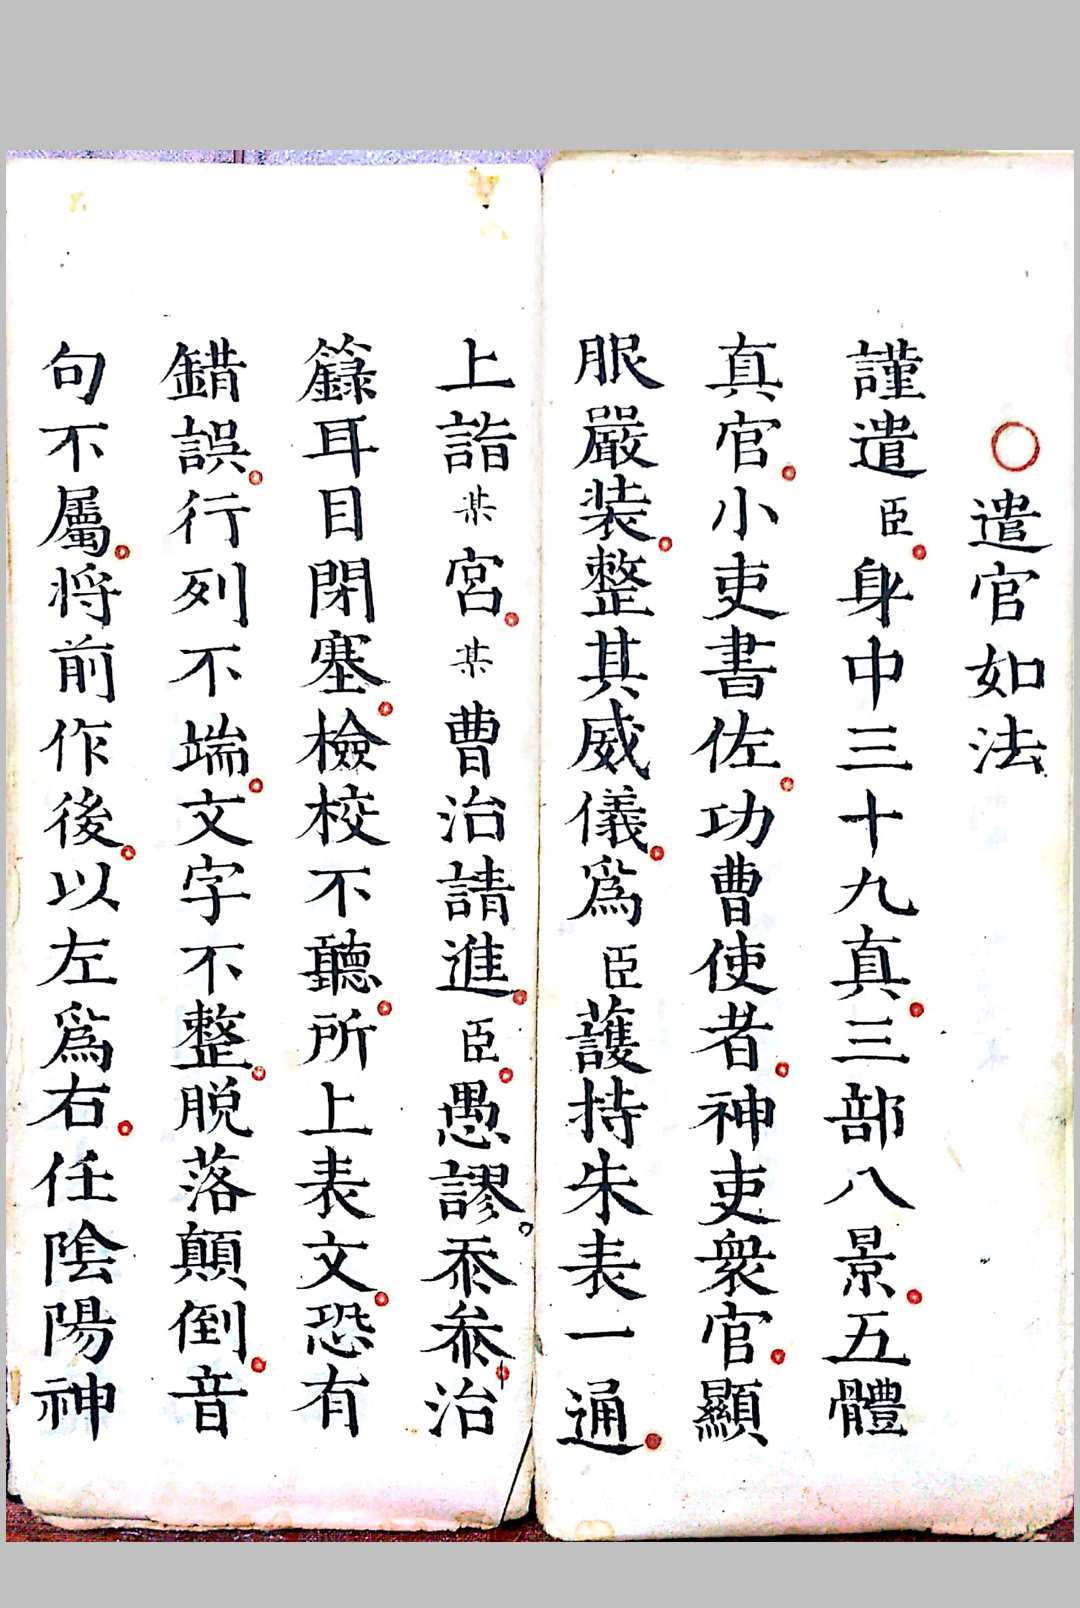 ○遣官如法
謹遣臣。身中三十九真。三部八景。五體
真官。小吏書佐。功曹使者。神吏衆官。顯
服嚴装。整其威儀。爲臣護持朱表一通。
上詣某宮。某曹治請進。臣。愚謬。忝叅。治
籙耳目閉塞。檢校不聽。所上表文。恐有
錯誤。行列不端。文字不整。脱落顛倒。音
句不屬。将前作後。以左爲右。任陰陽神